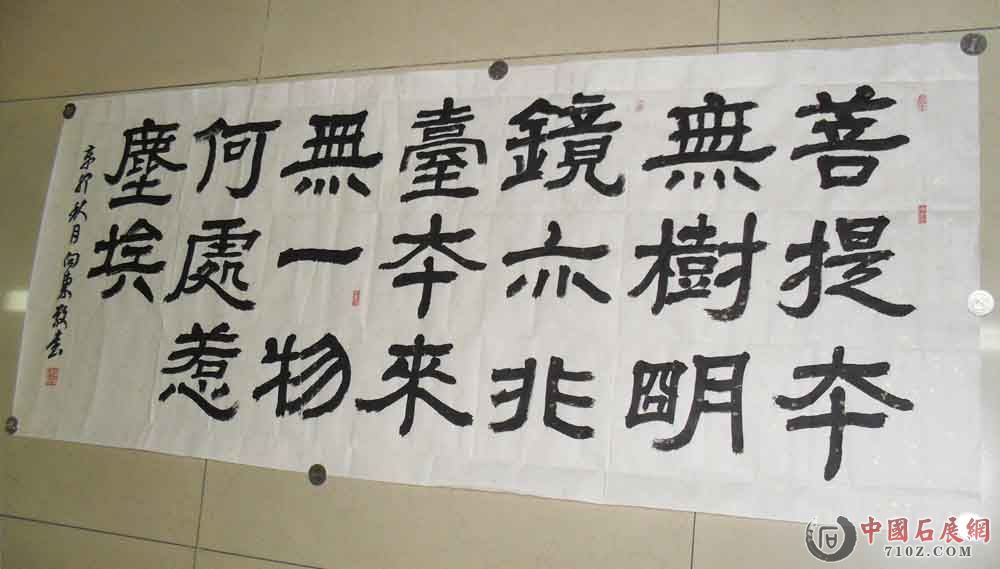 菩提本
無樹明
鏡亦非
臺本来
無一物
何處惹
塵埃
辛卯秋月向東敬書
中國石展網
710Z.COM